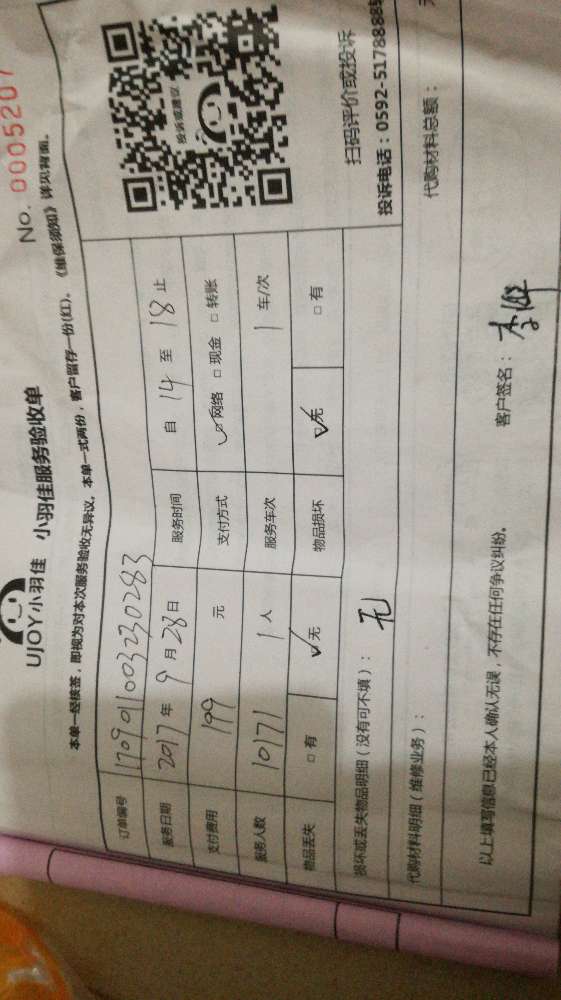 UJOY小羽佳 小羽佳服务验收单
No. 0005207
本单一经核签，即视为对本次服务验收无异议，本单一式两份，客户留存一份(红)。《维保须知》详见背面。
订单编号 170901100323028 3
服务日期 2017 年 9 月 28 日 服务时间 自 14 至 18 止
支付费用 199 元 支付方式 网络 现金 转账
服务人数 10171 1 人 服务车次 1 车/次
物品丢失 有 无 物品损坏 无 有
投诉或建议
扫码评价或投诉
投诉电话：0592-5178888
损坏或丢失物品明细（没有可不填）： 无
代购材料明细（维修业务）： 代购材料总额：
以上填写信息已经本人确认无误，不存在任何争议纠纷。 客户签名：